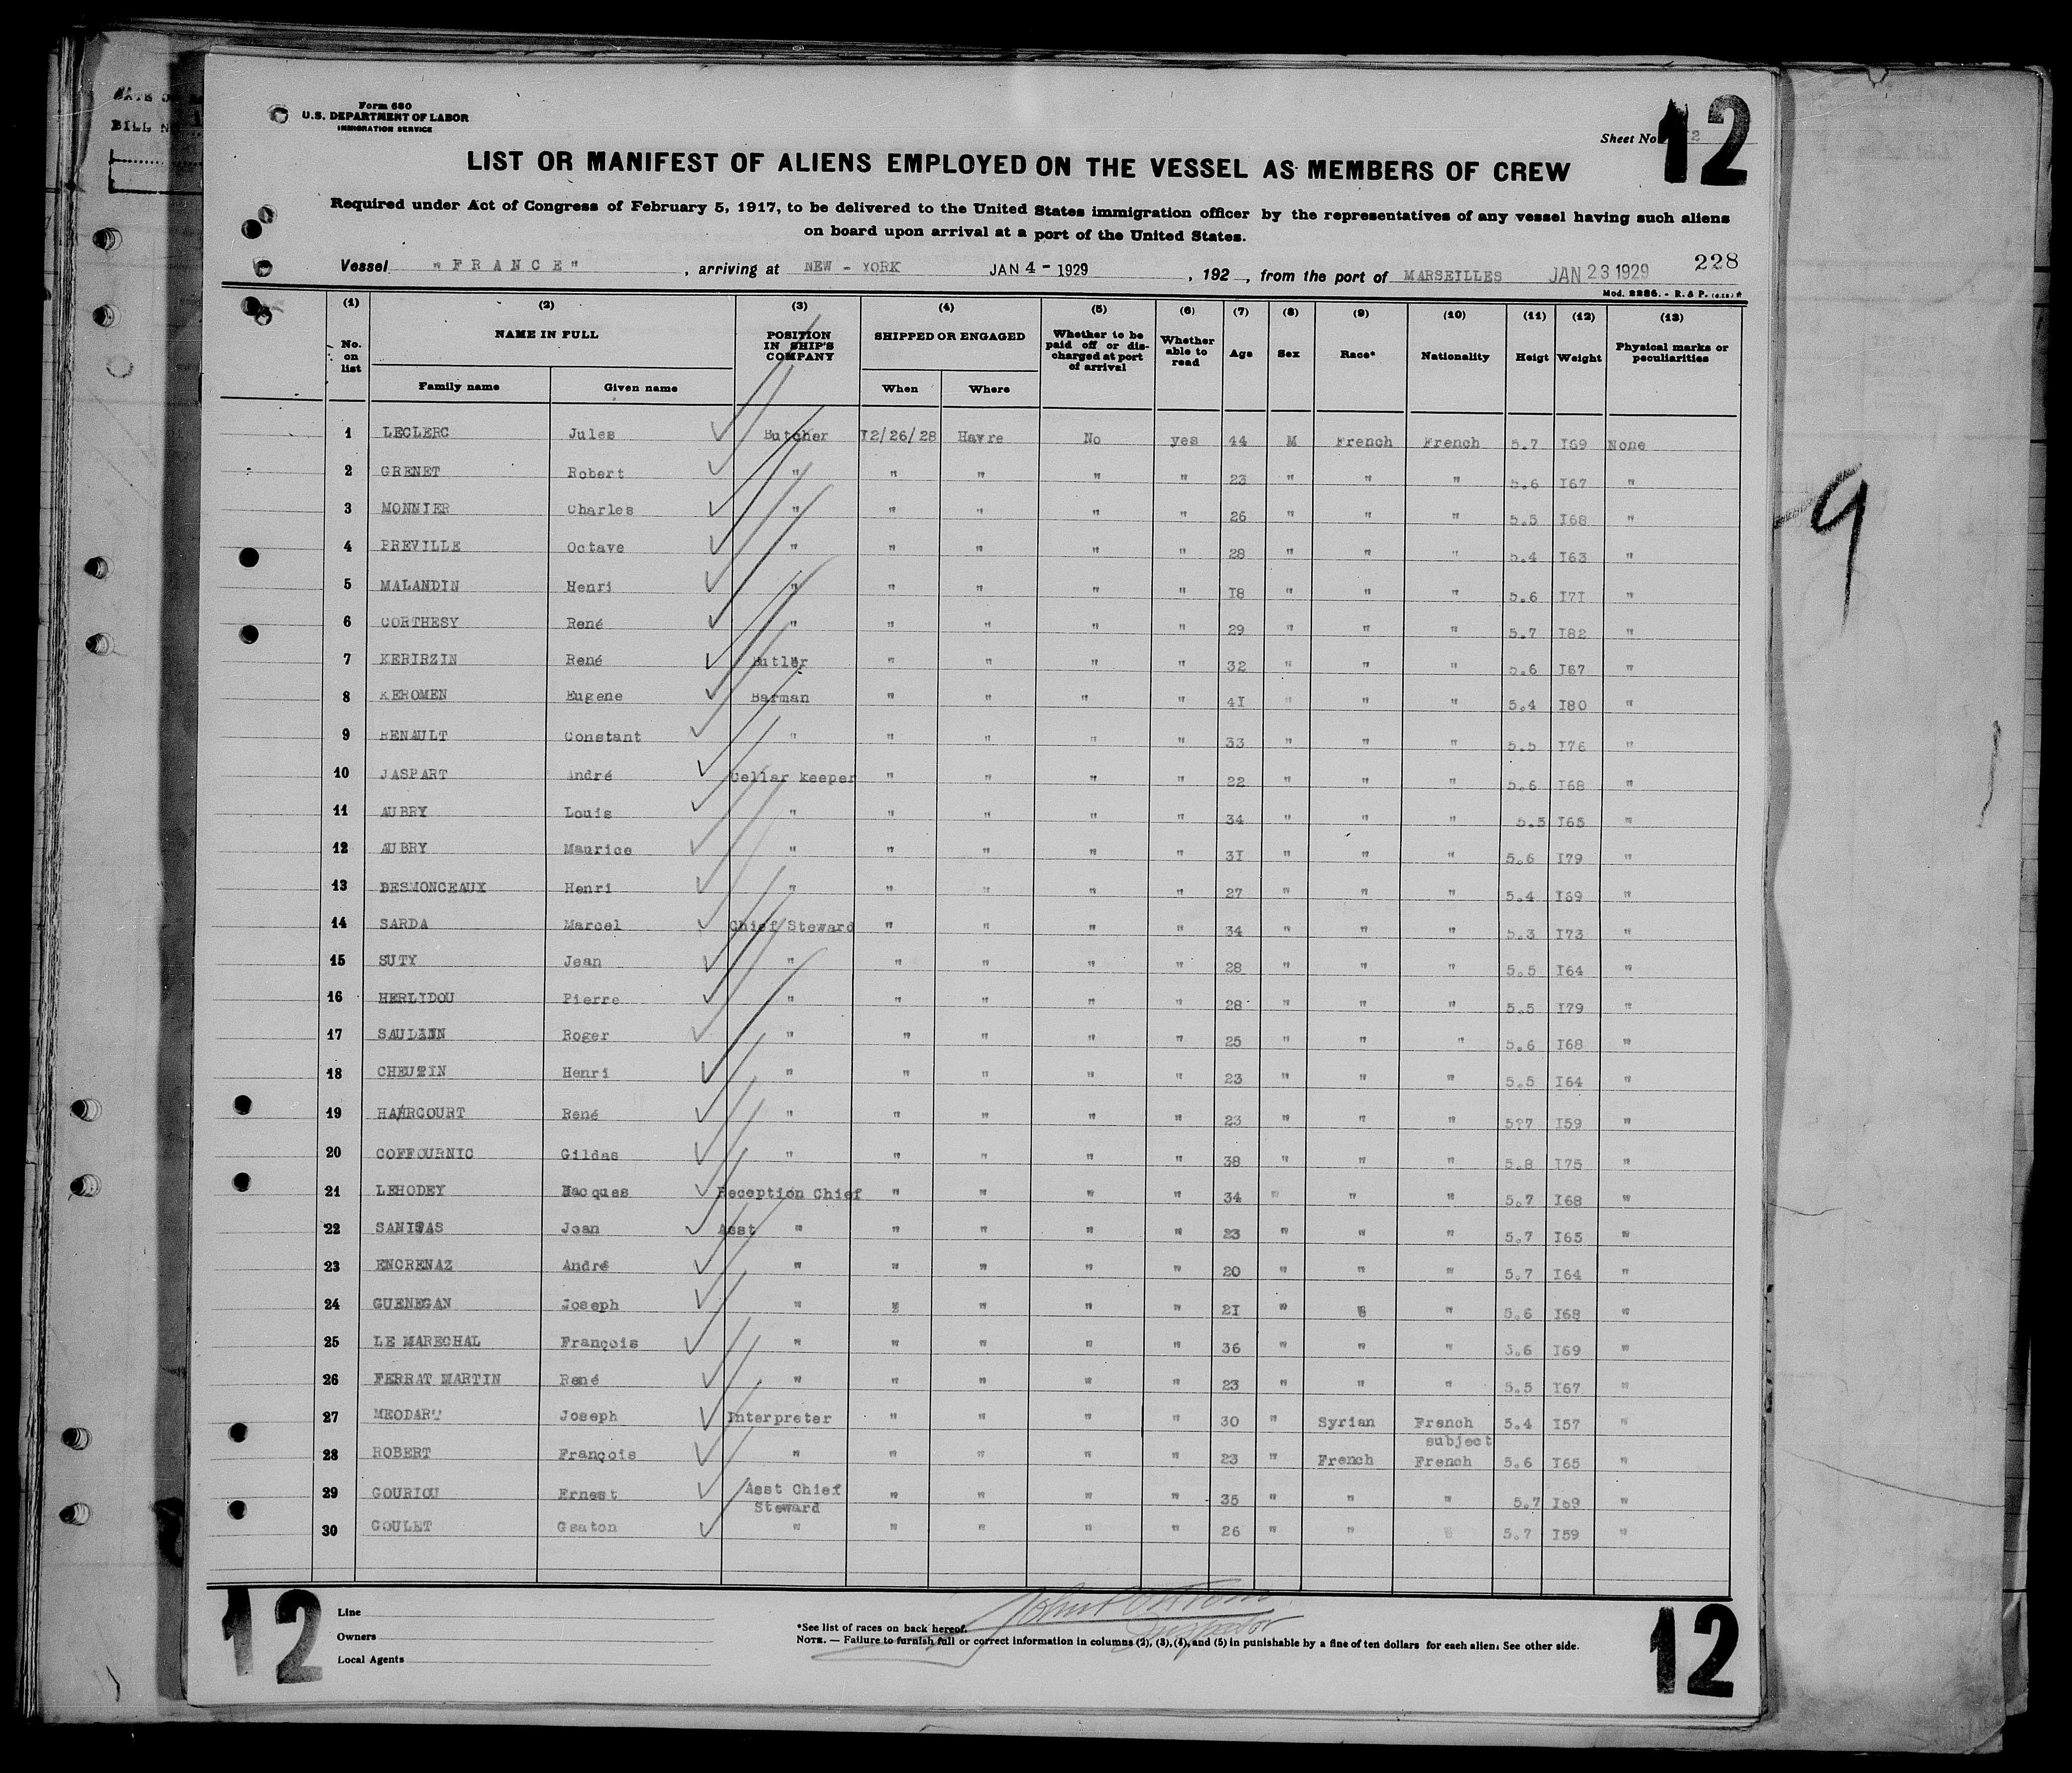 Form 680
U.S. DEPARTMENT OF LABOR
IMMIGRATION SERVICE
Sheet No. 12
12
LIST OR MANIFEST OF ALIENS EMPLOYED ON THE VESSEL AS MEMBERS OF CREW
Required under Act of Congress of February 5, 1917, to be delivered to the United States immigration officer by the representatives of any vessel having such aliens
on board upon arrival at a port of the United States.
228
Vessel "FRANCE" , arriving at NEW - YORK JAN 4 - 1929 , 192 , from the port of MARSEILLES JAN 23 1929
Mod. 2286. - R. & P.
(1) (2) (3) (4) (5) (6) (7) (8) (9) (10) (11) (12) (13)
No. on list NAME IN FULL Family name Given name POSITION IN SHIP'S COMPANY SHIPPED OR ENGAGED When Where Whether to be paid off or discharged at port of arrival Whether able to read Age Sex Race* Nationality Heigt Weight Physical marks or peculiarities
1 LECLERC Jules Butcher I2/26/28 Havre No yes 44 M French French 5.7 I69 None
2 GRENET Robert " " " " " 23 " " " 5.6 I67 "
3 MONNIER Charles " " " " " 26 " " " 5.5 I68 "
4 PREVILLE Octave " " " " " 28 " " " 5.4 I63 "
5 MALANDIN Henri " " " " " I8 " " " 5.6 I7I "
6 CORTHESY René " " " " " 29 " " " 5.7 I82 "
7 KERIRZIN René Butler " " " " 32 " " " 5.6 I67 "
8 KEROMEN Eugene Barman " " " " 4I " " " 5.4 I80 "
9 RENAULT Constant " " " " " 33 " " " 5.5 I76 "
10 JASPART André Cellar keeper " " " " 22 " " " 5.6 I68 "
11 AUBRY Louis " " " " " 34 " " " 5.5 I65 "
12 AUBRY Maurice " " " " " 3I " " " 5.6 I79 "
13 DESMONCEAUX Henri " " " " " 27 " " " 5.4 I69 "
14 SARDA Marcel Chief Steward " " " " 34 " " " 5.3 I73 "
15 SUTY Jean " " " " " 28 " " " 5.5 I64 "
16 HERLIDOU Pierre " " " " " 28 " " " 5.5 I79 "
17 Roger " " " " " 25 " " " 5.6 I68 "
18 CHEUTIN Henri " " " " " 23 " " " 5.5 I64 "
19 HAHRCOURT René " " " " " 23 " " " 5?7 I59 "
20 COFFOURNIC Gildas " " " " " 38 " " " 5.8 I75 "
21 LEHODEY Jacques Reception Chief " " " " 34 " " " 5.7 I68 "
22 SANITAS Jean Asst " " " " " 23 " " " 5.7 I65 "
23 ENCRENAZ André " " " " " 20 " " " 5.7 I64 "
24 GUENEGAN Joseph " " " " " 2I " " " 5.6 I68 "
25 LE MARECHAL François " " " " " 36 " " " 5.6 I69 "
26 FERRAT MARTIN René " " " " " 23 " " " 5.5 I67 "
27 MEODART Joseph Interpreter " " " " 30 " Syrian French subject 5.4 I57 "
28 ROBERT François " " " " " 23 " French French 5.6 I65 "
29 GOURIOU Ernest Asst Chief Steward " " " " 35 " " " 5.7 I69 "
30 GOULET Gsaton " " " " " 26 " " " 5.7 I59 "
9
12
Line
Owners
Local Agents
Inspector
*See list of races on back hereof.
NOTE. — Failure to furnish full or correct information in columns (2), (3), (4), and (5) in punishable by a fine of ten dollars for each alien. See other side.
12